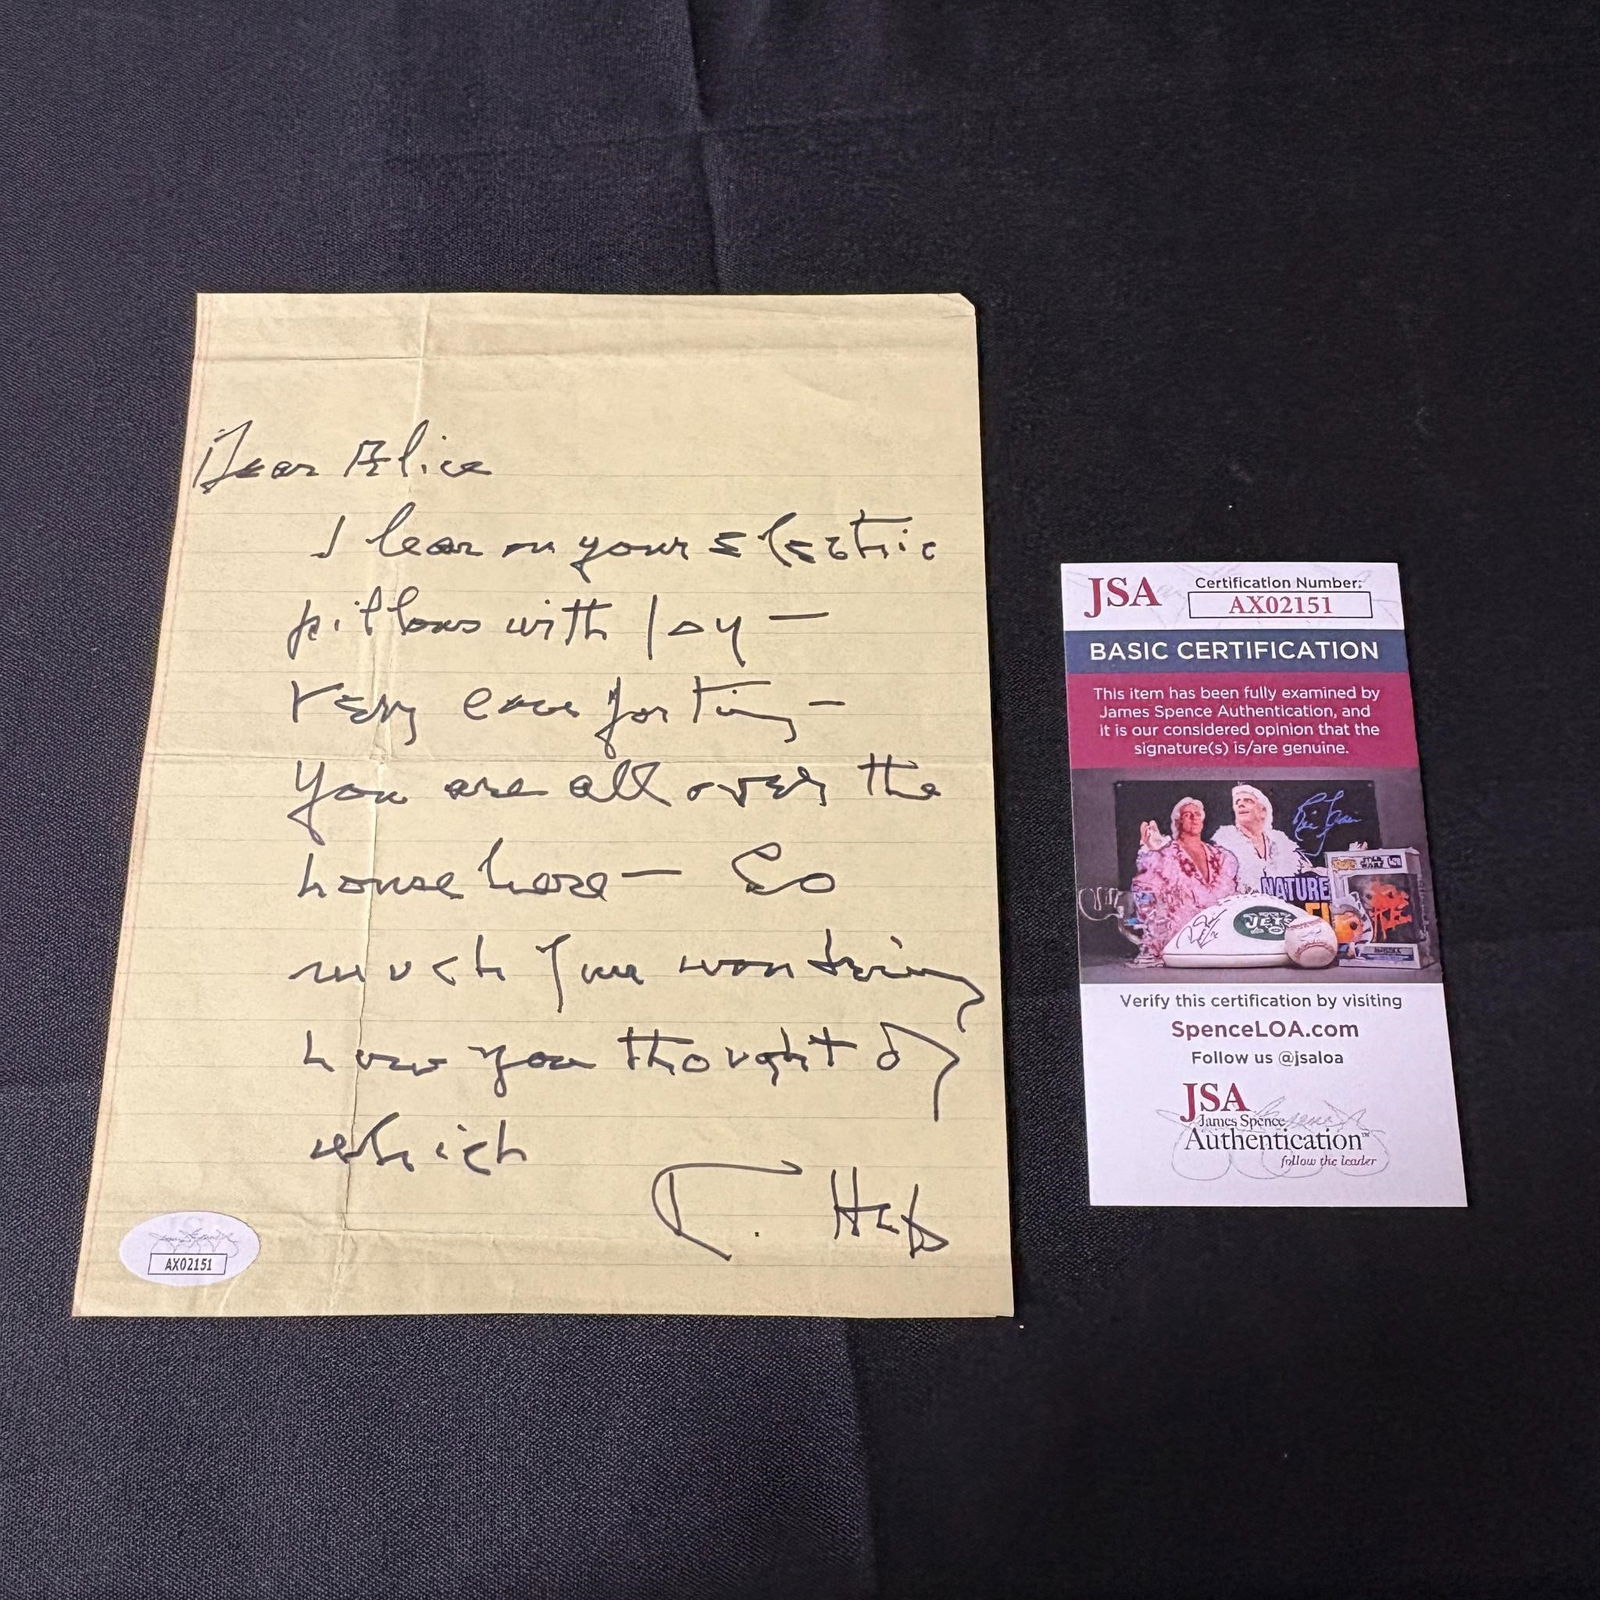 Dear Alice
I lean on your electric
pillows with joy —
Very comforting —
You are all over the
house here — So
much I am wondering
how you thought of
which
K. Hep
AX02151
JSA
Certification Number:
AX02151
BASIC CERTIFICATION
This item has been fully examined by
James Spence Authentication, and
it is our considered opinion that the
signature(s) is/are genuine.
NATURE
JETS
Verify this certification by visiting
SpenceLOA.com
Follow us @jsaloa
JSA
James Spence
Authentication™
follow the leader